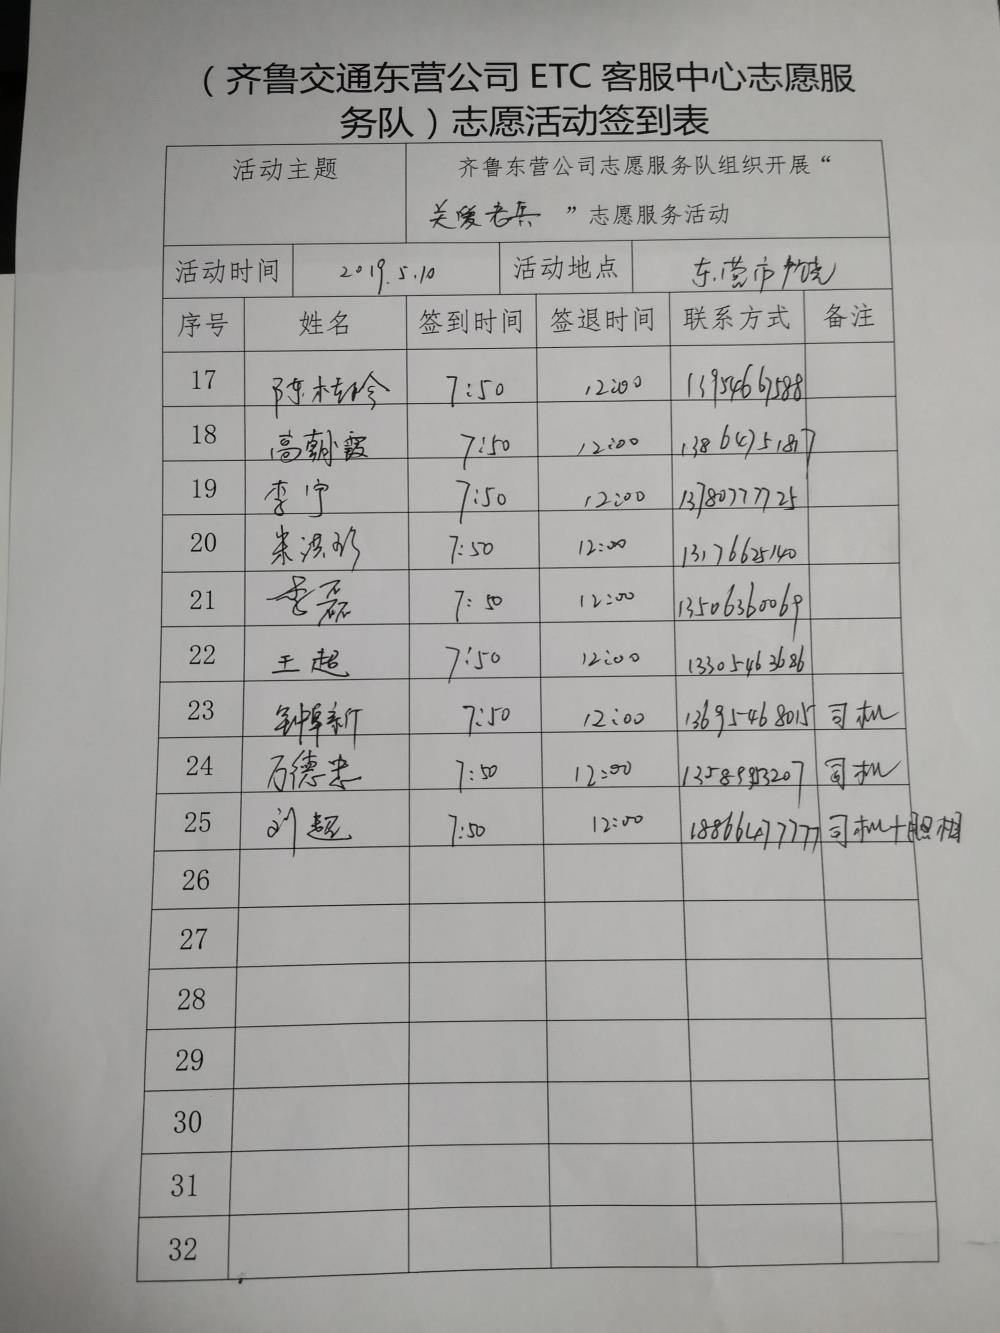 （齐鲁交通东营公司 ETC 客服中心志愿服
务队）志愿活动签到表
活动主题 齐鲁东营公司志愿服务队组织开展“
关爱老兵 ”志愿服务活动
活动时间 2019.5.10 活动地点 东营市
序号 姓名 签到时间 签退时间 联系方式 备注
17 陈桂玲 7:50 12:00 13954667588
18 高朝霞 7:50 12:00 13864751817
19 李宁 7:50 12:00 13780777725
20 7:50 12:00 13176625140
21 李磊 7:50 12:00 13506360069
22 王超 7:50 12:00 13305463686
23 7:50 12:00 13695468015 司机
24 万德忠 7:50 12:00 司机
25 刘超 7:50 12:00 18866477777 司机+照相
26
27
28
29
30
31
32